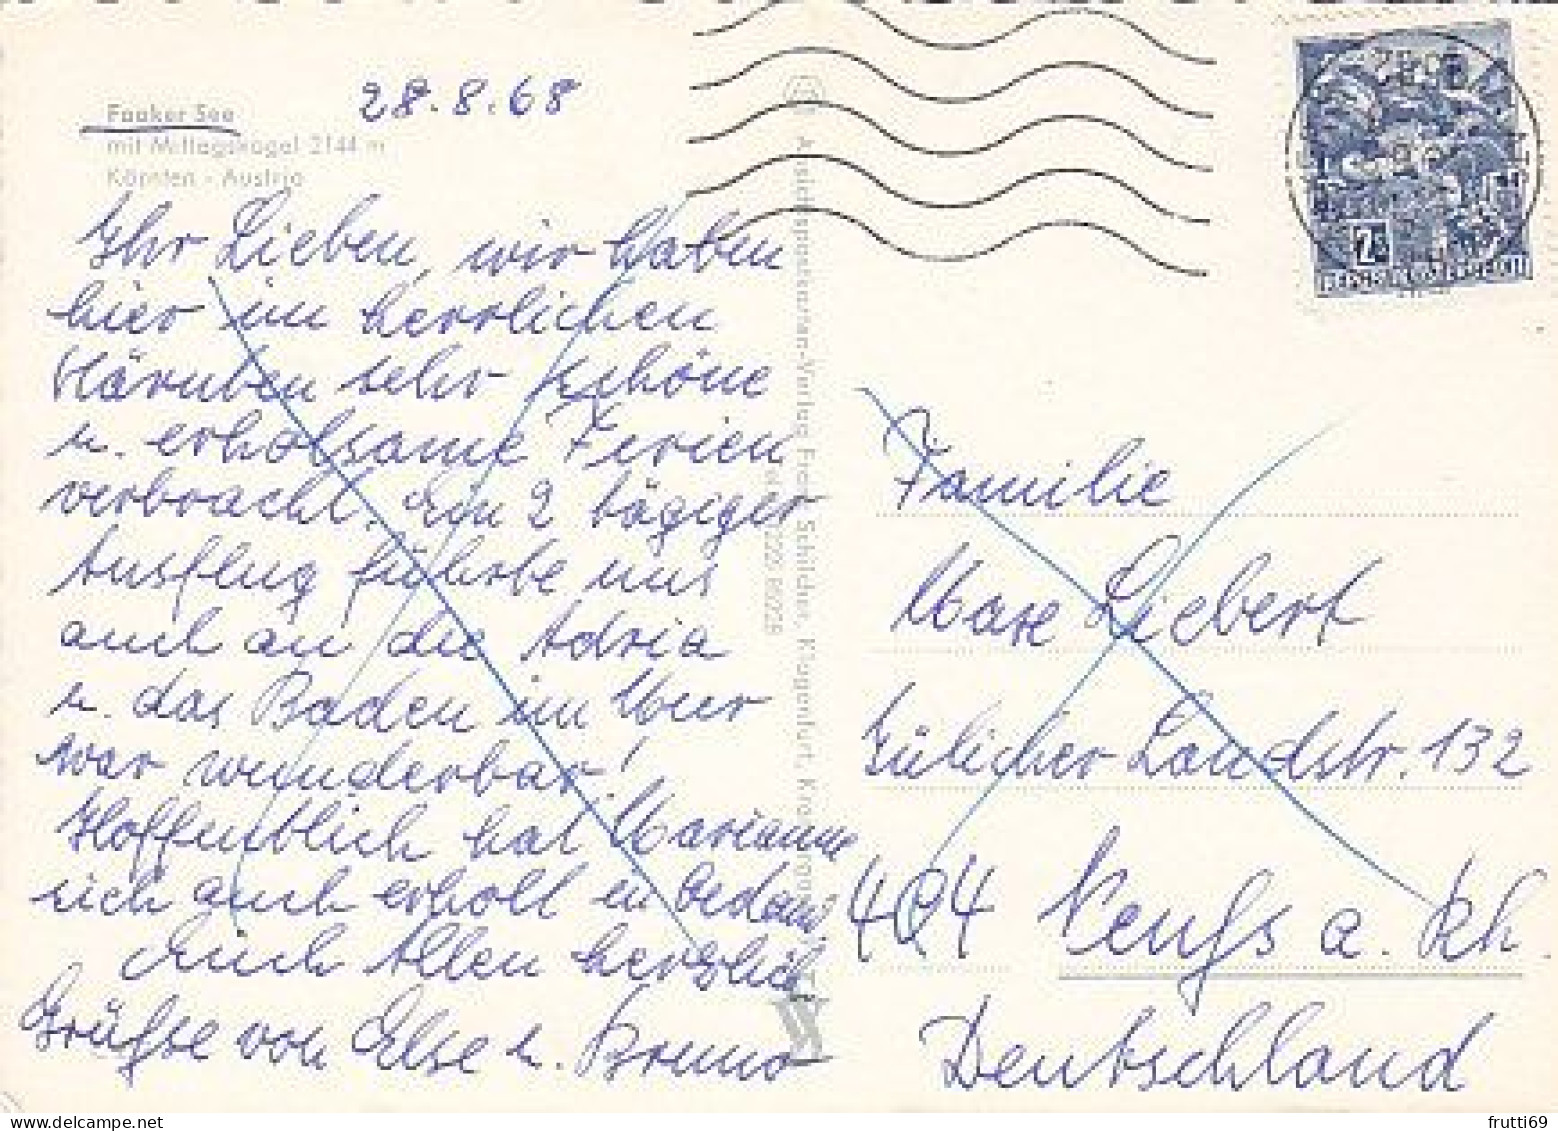 28.8.68
Faaker See
mit Mittagskogel 2144 m
Kärnten - Austria
Ihr Lieben, wir haben
hier im herrlichen
Kärnten sehr schöne
u. erholsame Ferien
verbracht. Ein 2 tägiger
Ausflug führte uns
auch an die Adria
u. das Baden im Meer
war wunderbar!
Hoffentlich hat Marianne
sich auch erholt in
Euch Allen herzlich
Grüße von Else u. Bruno
Ansichtskarten-Verlag Franz Schilcher, Klagenfurt
Familie
Max Liebert
Jülicher Landstr. 132
404 Neuß a. Rh.
Deutschland
frutti69